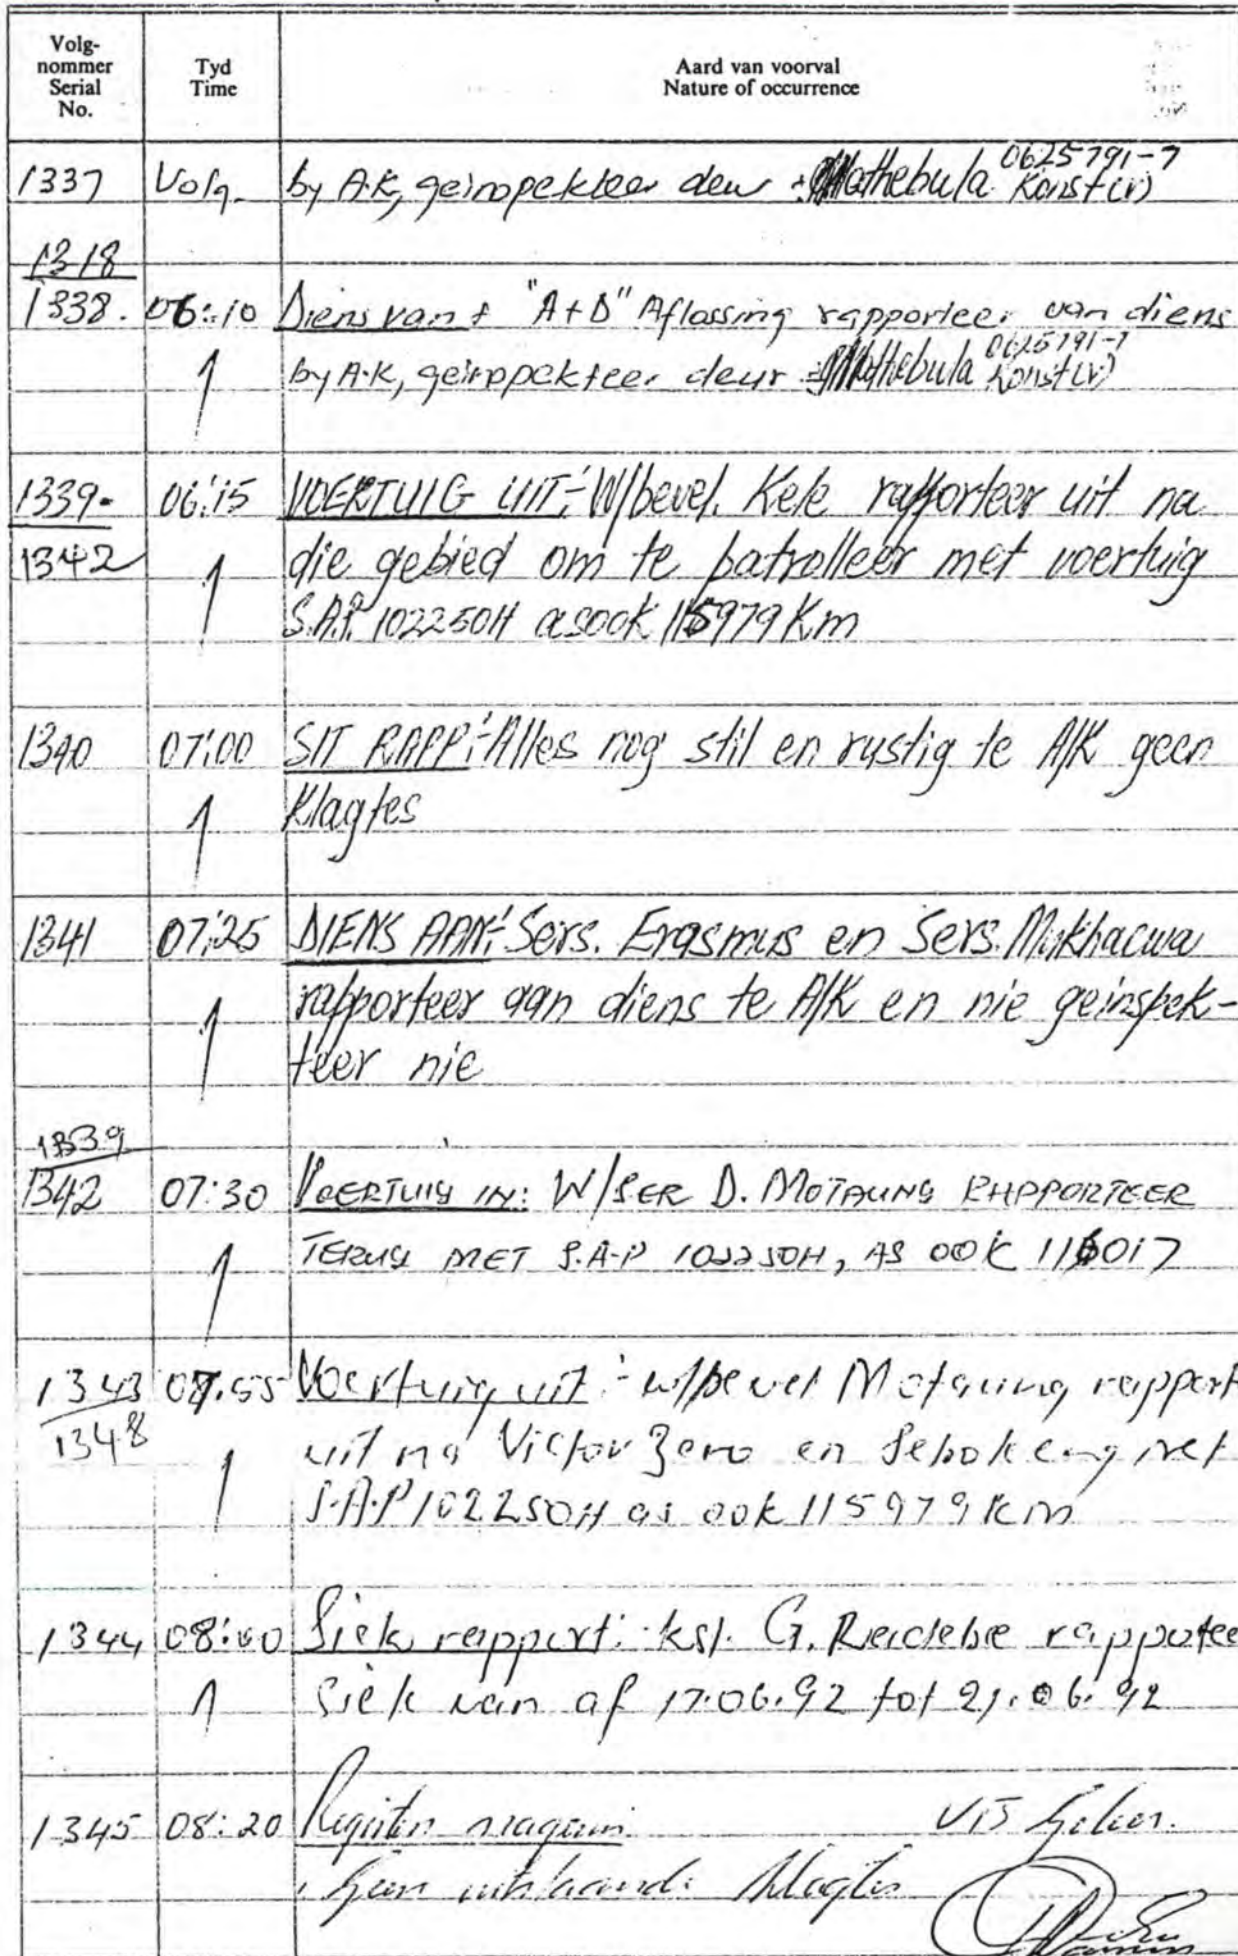 Volg-
nommer
Serial
No.
Tyd
Time
Aard van voorval
Nature of occurrence
1337 Volg. by A.K, geinspekteer deur : Mathebula 0625791-7 Konst(v)
1318
1338. 06:10 Diens van : "A+D" Aflossing rapporteer van diens
by A.K, geinspekteer deur : Mathebula 0625791-7 Konst(v)
1339- 06:15 VOERTUIG UIT:- W/bevel. Kele rapporteer uit na
1342 die gebied om te patrolleer met voertuig
S.A.P. 102250H asook 115979 Km
1340 07:00 SIT RAPP:- Alles nog stil en rustig te A/K geen
Klagtes
1341 07:25 DIENS AAN:- Sers. Erasmus en Sers.
rapporteer aan diens te A/K en nie geinspek-
teer nie
1339
1342 07:30 VOERTUIG IN: W/SER D. MOTAUNG RAPPORTEER
TERUG MET S.A.P 102250H, AS OOK 116017
1343 07.55 Voertuig uit :- w/bevel Motaung rapport
1348 uit na Victor Zero en Sebokeng met
S.A.P 102250H as ook 115979 km
1344 08:00 Siek rapport: kst. G. rapportee
siek van af 17.06.92 tot 21.06.92
1345 08:20 Register
Geen uitstaande klagtes